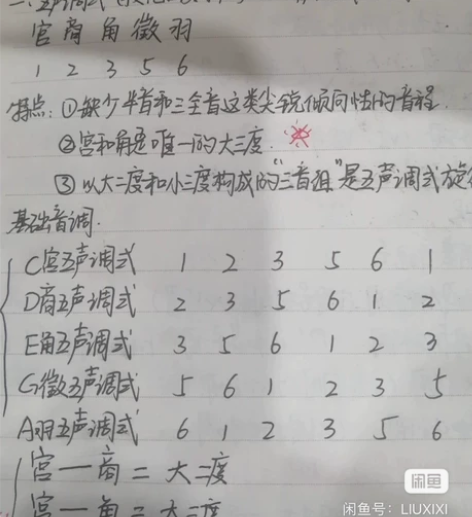 宫 商 角 徵 羽
1 2 3 5 6
特点: ①缺少半音和三全音这类尖锐倾向性的音程.
②宫和角是唯一的大三度.
③以大二度和小三度构成的"三音组"是五声调式旋
基础音调.
C宫五声调式 1 2 3 5 6 1
D商五声调式 2 3 5 6 1 2
E角五声调式 3 5 6 1 2 3
G徵五声调式 5 6 1 2 3 5
A羽五声调式 6 1 2 3 5 6
宫一商 = 大二度
宫一角 = 大三度
闲鱼
闲鱼号: LIUXIXI